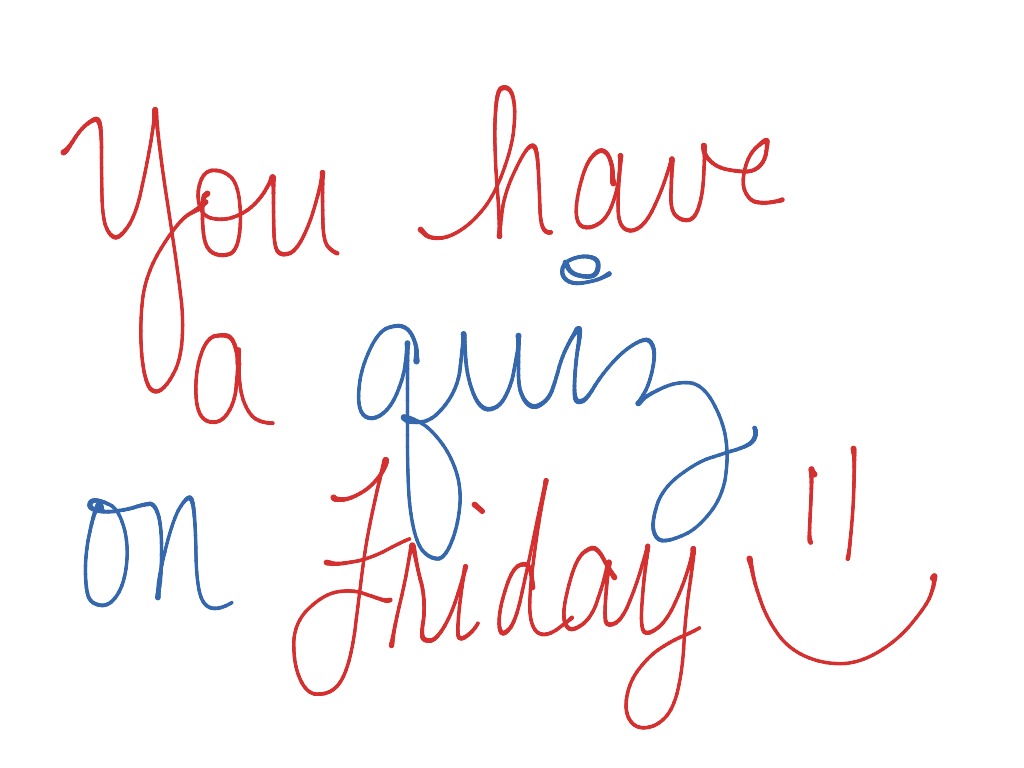 You have
a quiz
on Friday